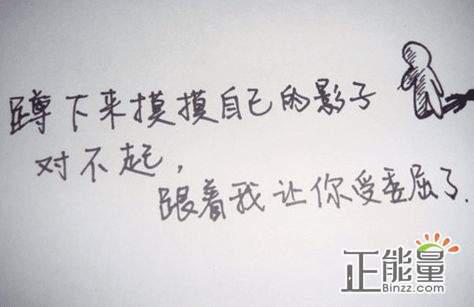 蹲下来摸摸自己的影子
对不起，
跟着我让你受委屈了.
正能量
Binzz.com